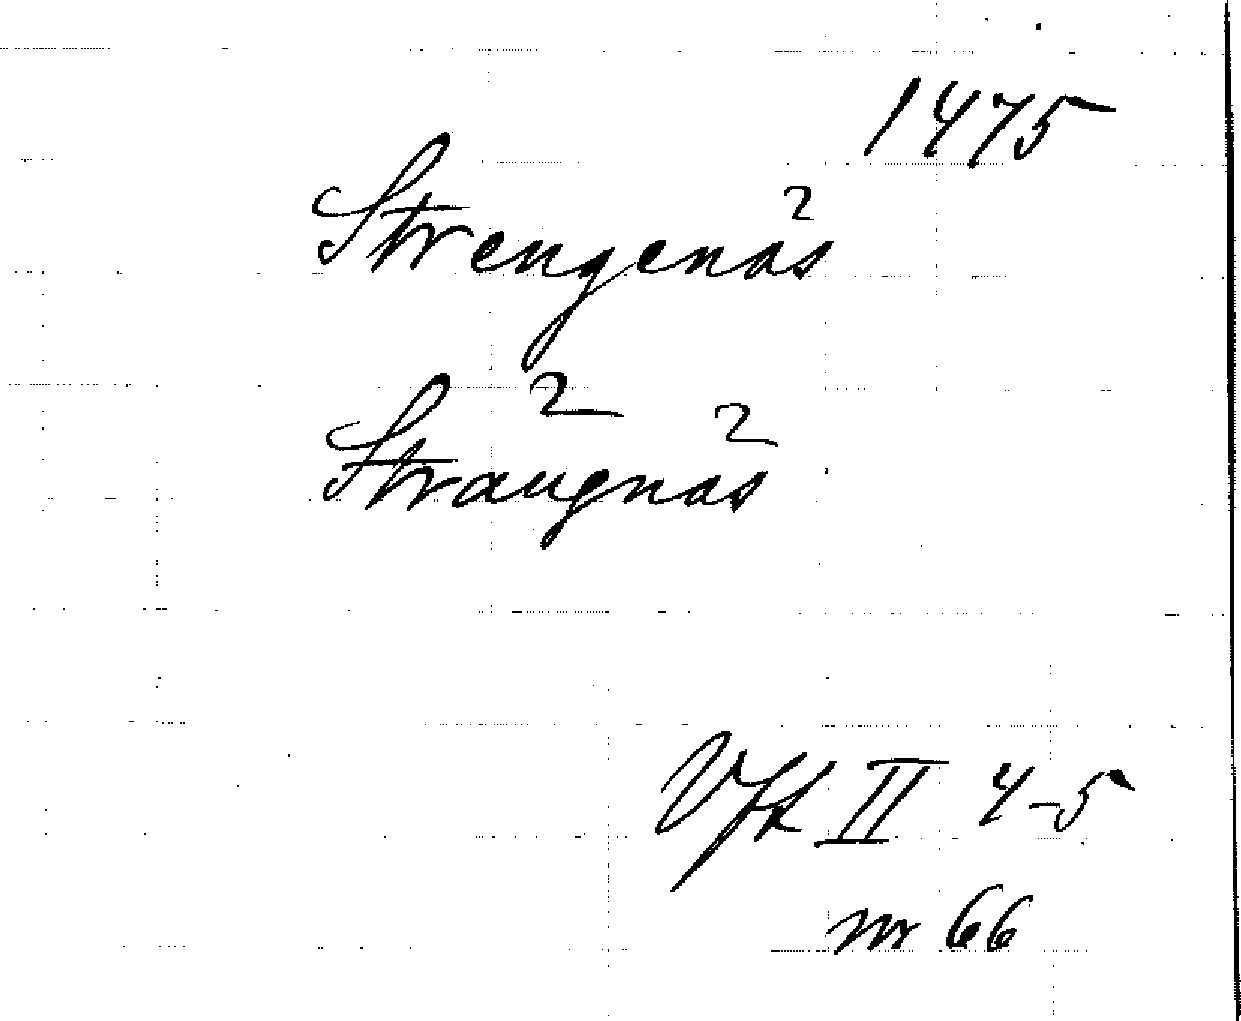 1475
Strengenäs
Strängnäs
Vfk II 4-5
nr 66